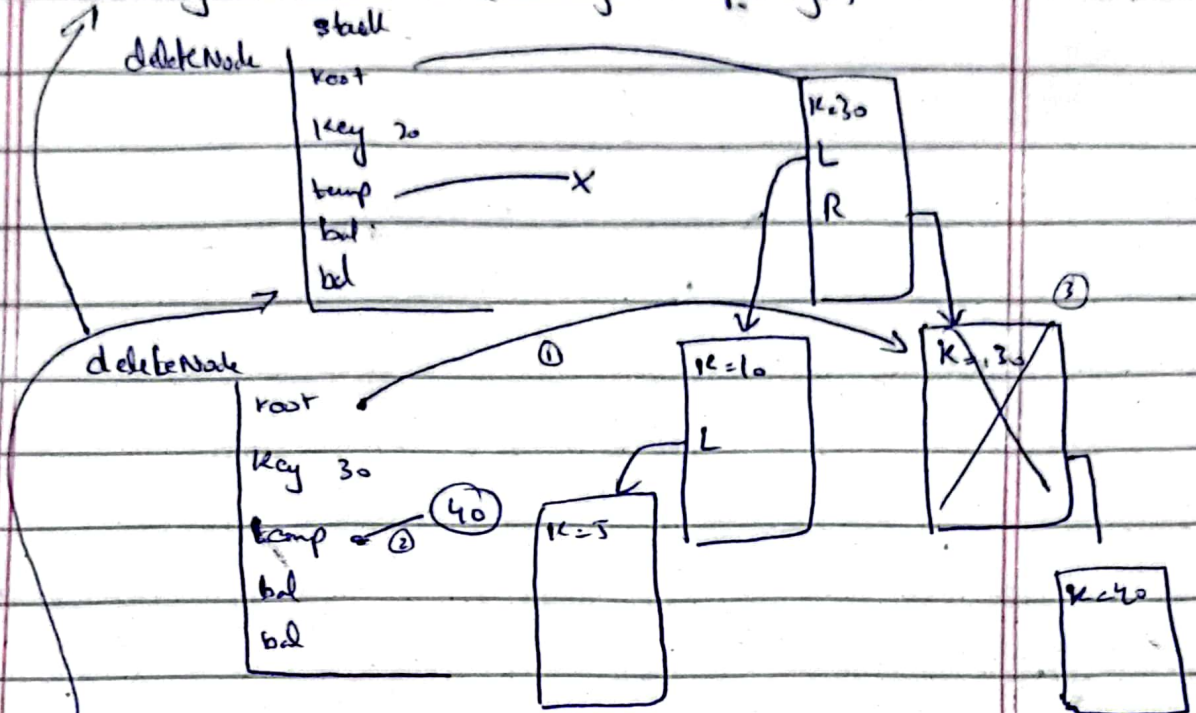 stack
deleteNode
root
Key 20
temp X
bal
bal
K=30
L
R
③
deleteNode
①
root
Key 30
temp ② 40
bal
bal
K=10
L
K=5
K=30
K=40